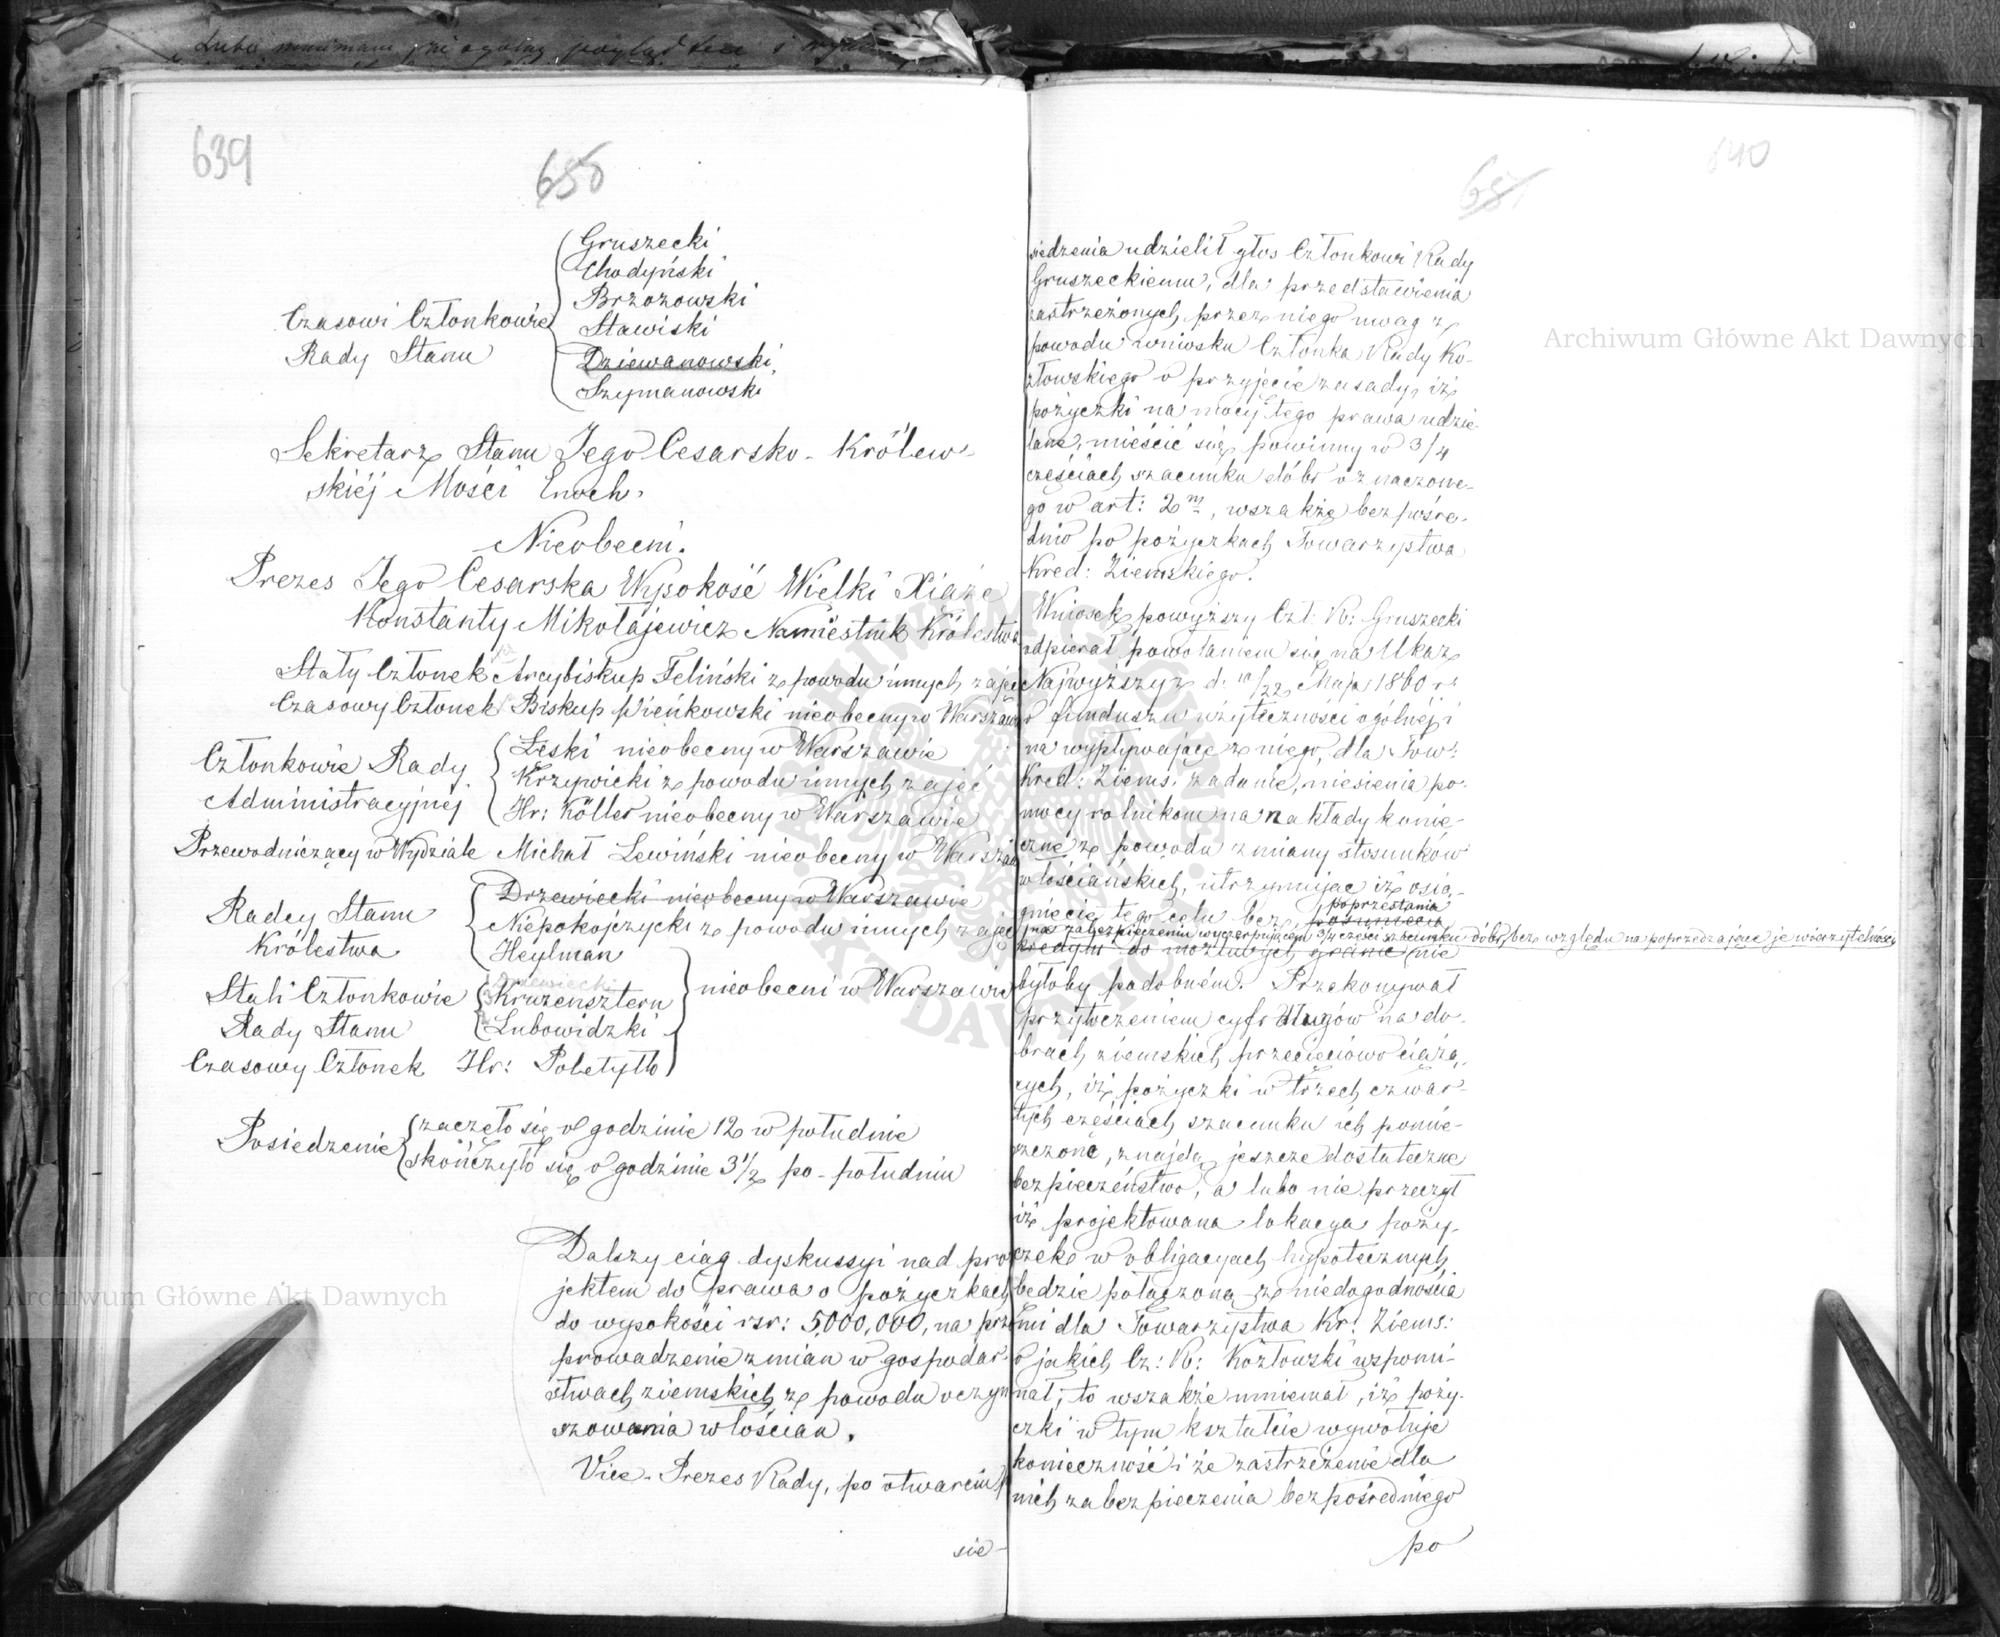 639
650
Gruszecki
Chodyński
Brzozowski
Czasowi Członkowie
Stawiski
Rady Stanu
Dziewanowski,
Szymanowski
Sekretarz Stanu Jego Cesarsko-Królew-
skiéj Mości Enoch.
Nieobecni.
Prezes Jego Cesarska Wysokość Wielki Xiąże
Konstanty Mikołajewicz Namiestnik Królestwa
Stały Członek Arcybiskup Feliński z powodu innych zajęć
Czasowy Członek Biskup Pieńkowski nieobecny w Warszawie
Członkowie Rady
Administracyjnéj
Łęski nieobecny w Warszawie
Krzywicki z powodu innych zajęć
Hr: Köller nieobecny w Warszawie
Przewodniczący w Wydziale Michał Lewiński nieobecny w Warszaw
Radcy Stanu
Królestwa
Drzewiecki nieobecny w Warszawie
Niepokojczycki z powodu innych zajęć
Heylman
Stali Członkowie
Rady Stanu
Drzewiecki
Kruzensztern
Lubowidzki
nieobecni w Warszawie
Czasowy Członek Hr: Poletyłło
Posiedzenie
zaczęło się o godzinie 12 w południe
skończyło się o godzinie 3 1/2 po-południu
Dalszy ciąg dyskussyi nad pro
jektem do prawa o pożyczkach
do wysokości rsr: 5,000,000, na prze
prowadzenie zmian w gospodar-
stwach ziemskich z powodu oczyn
szowania włościan.
Vice-Prezes Rady, po otwarciu p
sie-
640
651
siedzenia udzielił głos Członkowi Rady
Gruszeckiemu, dla przedstawienia
zastrzeżonych przez niego uwag z
powodu wniosku Członka Rady Ko-
złowskiego o przyjęcie zasady, iż
pożyczki na mocy tego prawa udzie-
lane, mieścić się powinny w 3/4
częściach szacunku dóbr oznaczone-
go w art: 2m, wszakże bezpośre-
dnio po pożyczkach Towarzystwa
Kred: Ziemskiego.
Wniosek powyższy Czł: R: Gruszecki
odpierał powołaniem się na Ukaz
Najwyższy z d: 10/22 Maja 1860 r.
o funduszu użyteczności ogólnéj i
na wypływające z niego, dla Tow:
Kred: Ziems: zadanie, niesienia po-
mocy rolnikom na nakłady konie-
czne z powodu zmiany stosunków
włościańskich, utrzymując iż osią-
gnięcie tego celu bez posunięcia
poprzestania
na zabezpieczeniu wyczerpującem 3/4 części szacunku dóbr, bez względu na poprzedzające je wierzytelności
kredytu do możliwych granic nie
byłoby podobném. Przekonywał
przytoczeniem cyfr długów na do-
brach ziemskich przecięciowo ciążą-
cych, iż pożyczki w trzech czwar-
tych częściach szacunku ich pomie-
szczone, znajdą jeszcze dostateczne
bezpieczeństwo, a lubo nie przeczył
iż projektowana lokacya poży-
czek w obligacyach hypotecznych
będzie połączoną z niedogodnościa
mi dla Towarzystwa Kr: Ziems:
o jakich Cz: R: Kozłowski wspomi-
nał, to wszakże mniemał, iż poży-
czki w tym kształcie wywołuje
konieczność i że zastrzeżenie dla
nich zabezpieczenia bezpośredniego
po
Archiwum Główne Akt Dawnych
Archiwum Główne Akt Dawnych